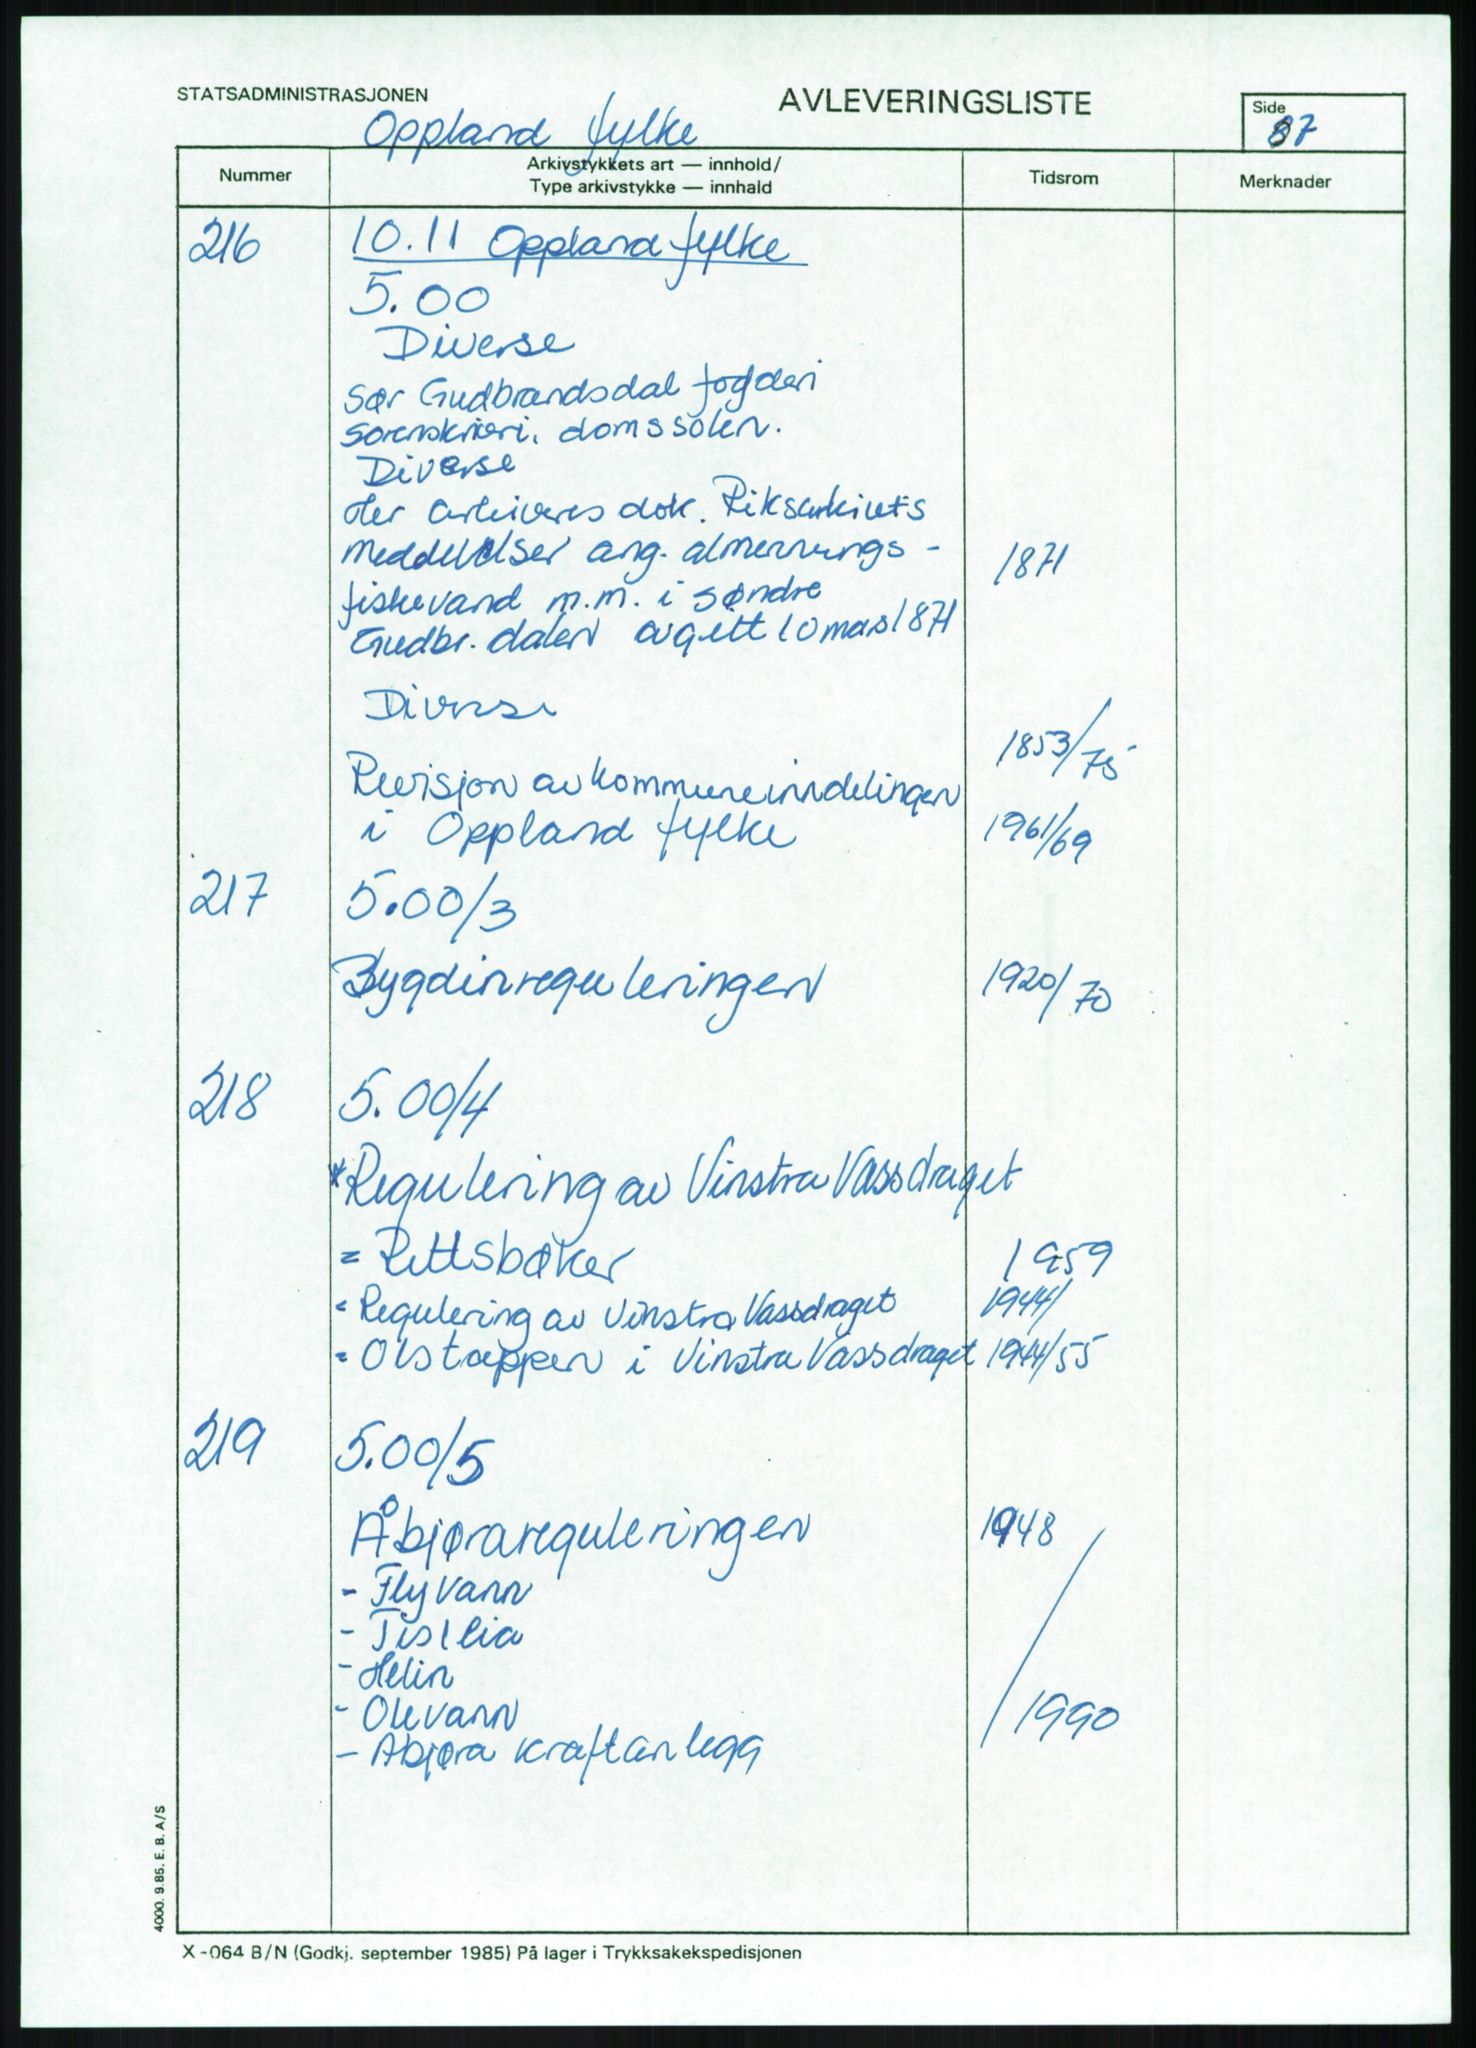 STATSADMINISTRASJONEN
AVLEVERINGSLISTE
Side
87
Oppland fylke
Nummer
Arkivstykkets art — innhold/
Type arkivstykke — innhald
Tidsrom
Merknader
216 10.11 Oppland fylke
5.00
Diverse
Sør Gudbrandsdal fogderi
Sorenskriveri, domssolen.
Diverse
Her arkiveres dok. Riksarkivets
meddelelser ang. almennings- 1871
fiskevand m.m. i søndre
Gudbr.dalen avgitt 10 mars 1871
Diverse
1853/75
Revisjon av kommuneinndelingen
i Oppland fylke 1961/69
217 5.00/3
Bygdinreguleringen 1920/70
218 5.00/4
*Regulering av Vinstra Vassdraget
= Rettsbøker 1959
= Regulering av Vinstra Vassdraget 1944/
= Olstappen i Vinstra Vassdraget 1944/55
219 5.00/5
Åbjørareguleringen 1948
- Flyvann
- Tisleia
- Helin
- Olevann / 1990
- Åbjøra kraftanlegg
4000. 9.85. E. B. A/S
X-064 B/N (Godkj. september 1985) På lager i Trykksakekspedisjonen